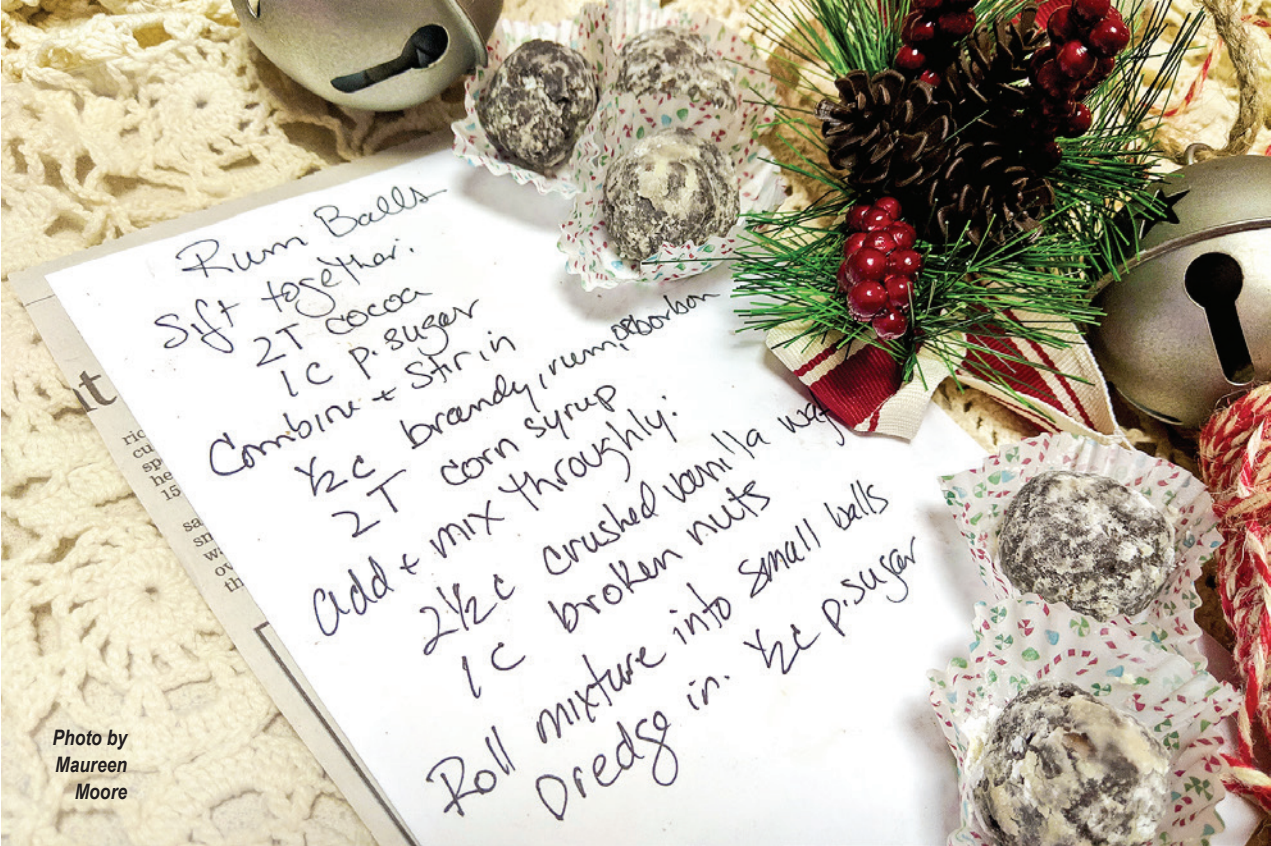 Rum Balls
Sift together.
2T cocoa
1C p. sugar
Combine + Stir in
1/2c brandy, rum, or borbon
2T corn syrup
add + mix throughly:
2 1/2c crushed vanilla waf
1C broken nuts
Roll mixture into small balls
Dredge in. 1/2c p. sugar
Photo by
Maureen
Moore